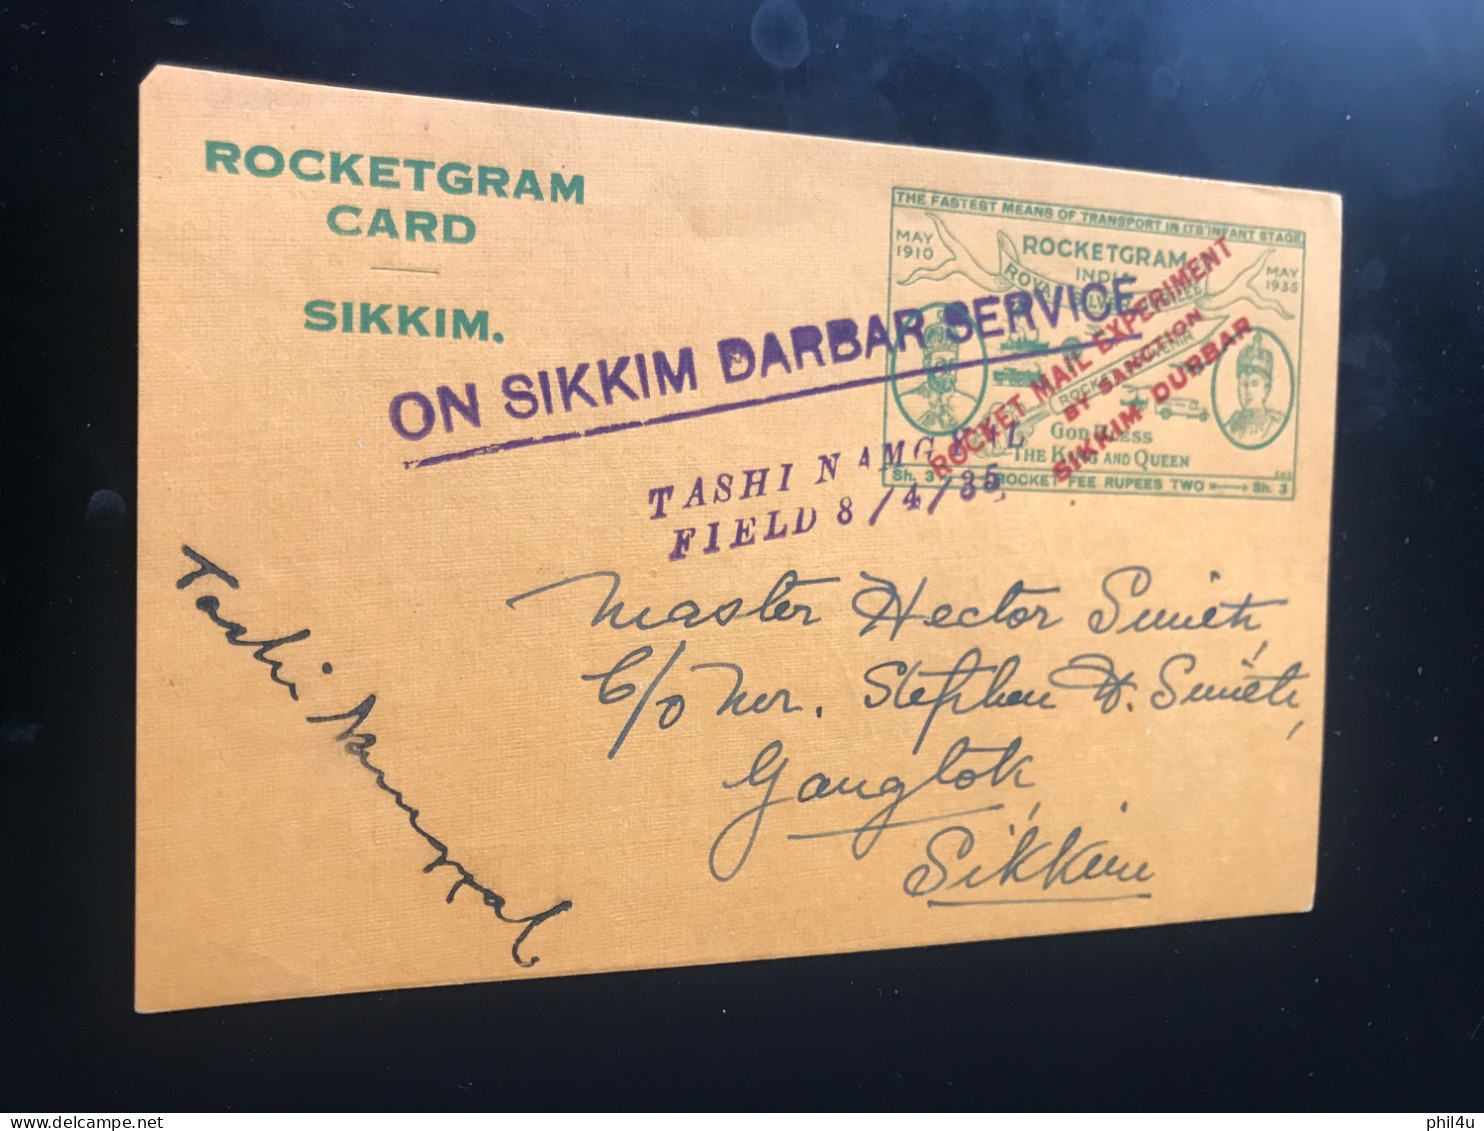 ROCKETGRAM
CARD
SIKKIM.
THE FASTEST MEANS OF TRANSPORT IN ITS INFANT STAGE
MAY
1910
ROCKETGRAM
INDIA
ROYAL SILVER JUBILEE
MAY
1935
ROCKET SOUVENIR
GOD BLESS
THE KING AND QUEEN
Sh. 3 ROCKET FEE RUPEES TWO Sh. 3
ROCKET MAIL EXPERIMENT
BY SANCTION
SIKKIM DURBAR
ON SIKKIM DARBAR SERVICE
TASHI NAMGYAL
FIELD 8/4/35
Master Hector Smith,
C/o Mr. Stephen H. Smith,
Gangtok,
Sikkim
Tashi Namgyal
phil4u